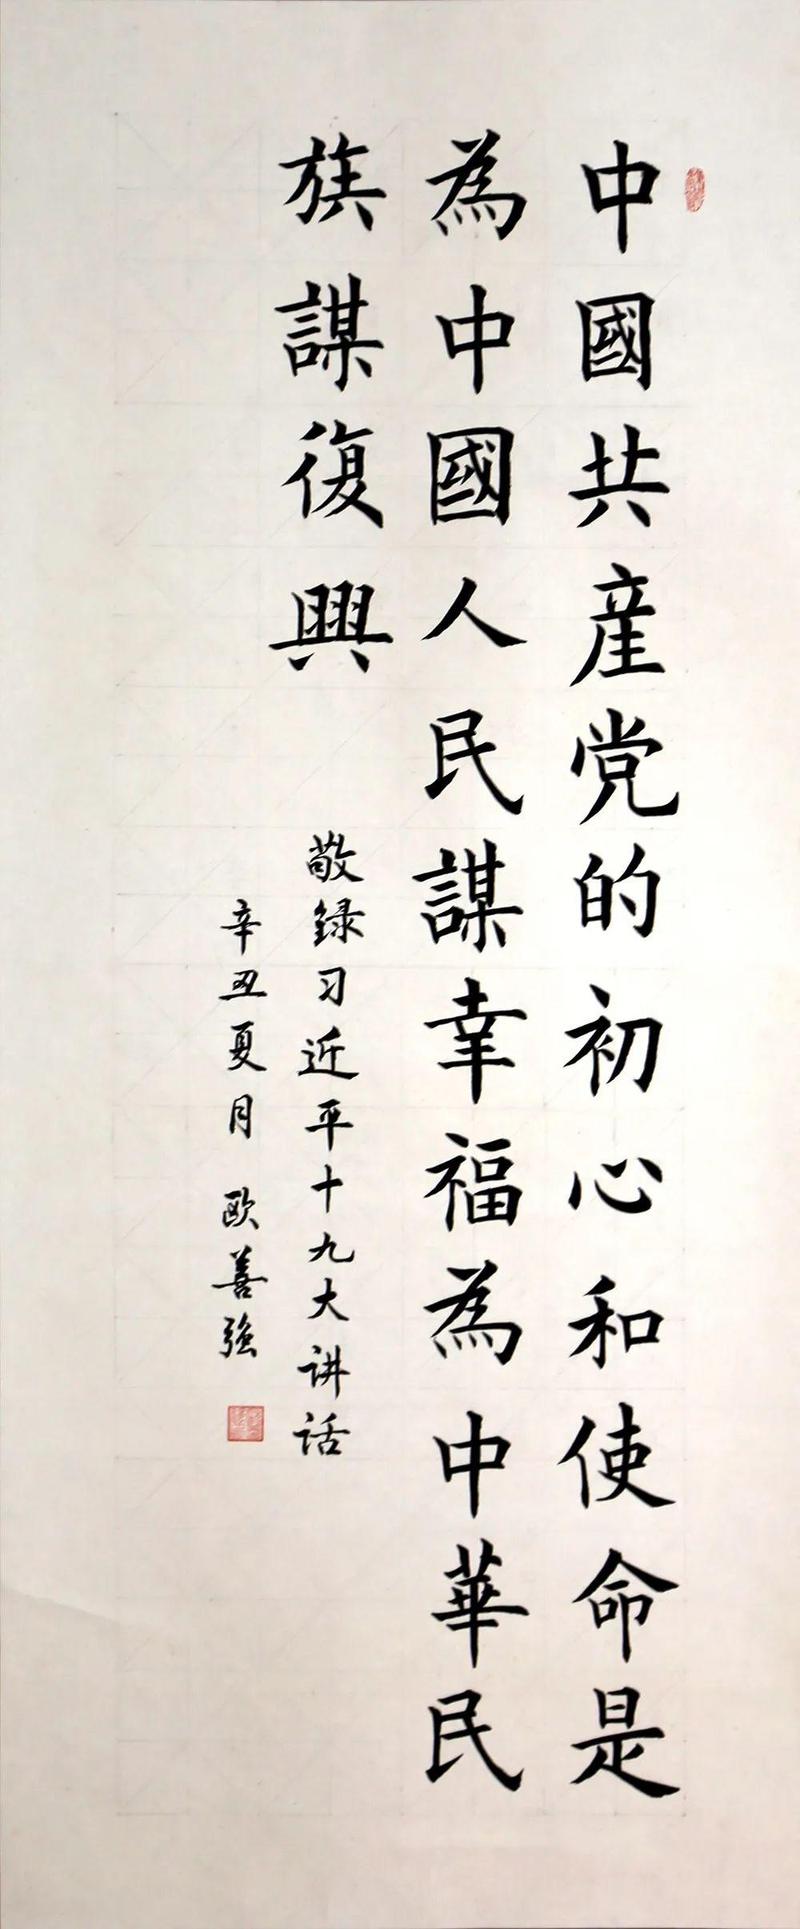 中國共産党的初心和使命是
為中國人民謀幸福為中華民
族謀復興
敬録习近平十九大讲话
辛丑夏月 欧善强